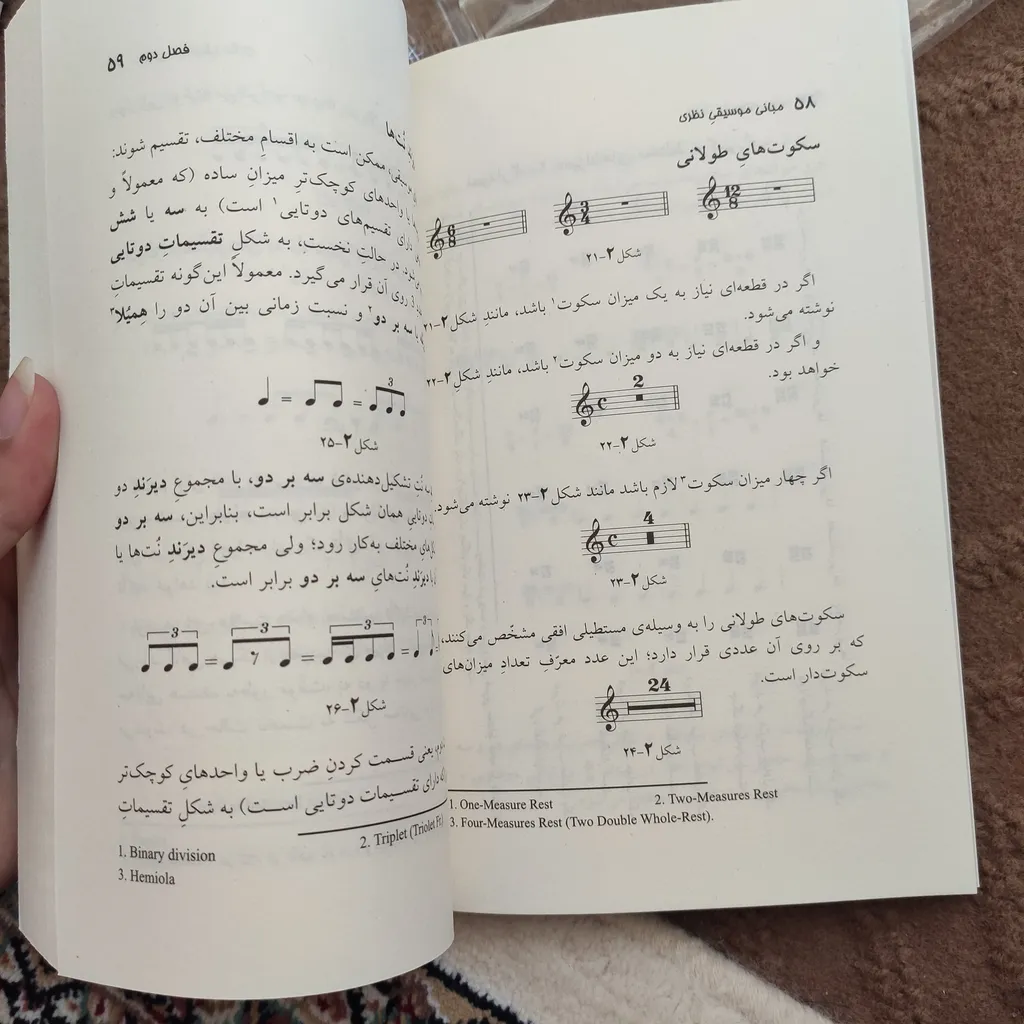 ۵۸ مبانی موسیقیِ نظری
سکوت‌هایِ طولانی
6 8
3 4
12 8
شکل ۲-۲۱
اگر در قطعه‌ای نیاز به یک میزان سکوت۱ باشد، مانندِ شکل ۲-۲۱
نوشته می‌شود.
و اگر در قطعه‌ای نیاز به دو میزان سکوت۲ باشد، مانندِ شکلِ ۲-۲۲
خواهد بود.
2
شکل ۲-۲۲
اگر چهار میزان سکوت۳ لازم باشد مانند شکل ۲-۲۳ نوشته می‌شود.
4
شکل ۲-۲۳
سکوت‌های طولانی را به وسیله‌ی مستطیلی افقی مشخّص می‌کنند،
که بر روی آن عددی قرار دارد؛ این عدد معرّفِ تعدادِ میزان‌های
سکوت‌دار است.
24
شکل ۲-۲۴
1. One-Measure Rest 2. Two-Measures Rest
3. Four-Measures Rest (Two Double Whole-Rest).
فصل دوم ۵۹
موسیقی، ممکن است به اقسامِ مختلف، تقسیم شوند:
یا واحدهای کوچک‌ترِ میزانِ ساده (که معمولاً و
دارای تقسیم‌های دوتایی۱ است) به سه یا شش
در حالتِ نخست، به شکلِ تقسیماتِ دوتایی
روی آن قرار می‌گیرد. معمولاً این‌گونه تقسیماتِ
سه بر دو۲ و نسبت زمانی بین آن دو را هِمیُلا۳
3
شکل ۲-۲۵
نُت تشکیل‌دهنده‌ی سه بر دو، با مجموعِ دیرَندِ دو
دوتایی همان شکل برابر است، بنابراین، سه بر دو
مختلف به‌کار رود؛ ولی مجموعِ دیرَندِ نُت‌ها یا
دیرَندِ نُت‌هایِ سه بر دو برابر است.
3 3 3 3
شکل ۲-۲۶
یعنی قسمت کردنِ ضرب یا واحدهایِ کوچک‌تر
دارای تقسیمات دوتایی است) به شکلِ تقسیماتِ
1. Binary division 2. Triplet (Triolet
3. Hemiola